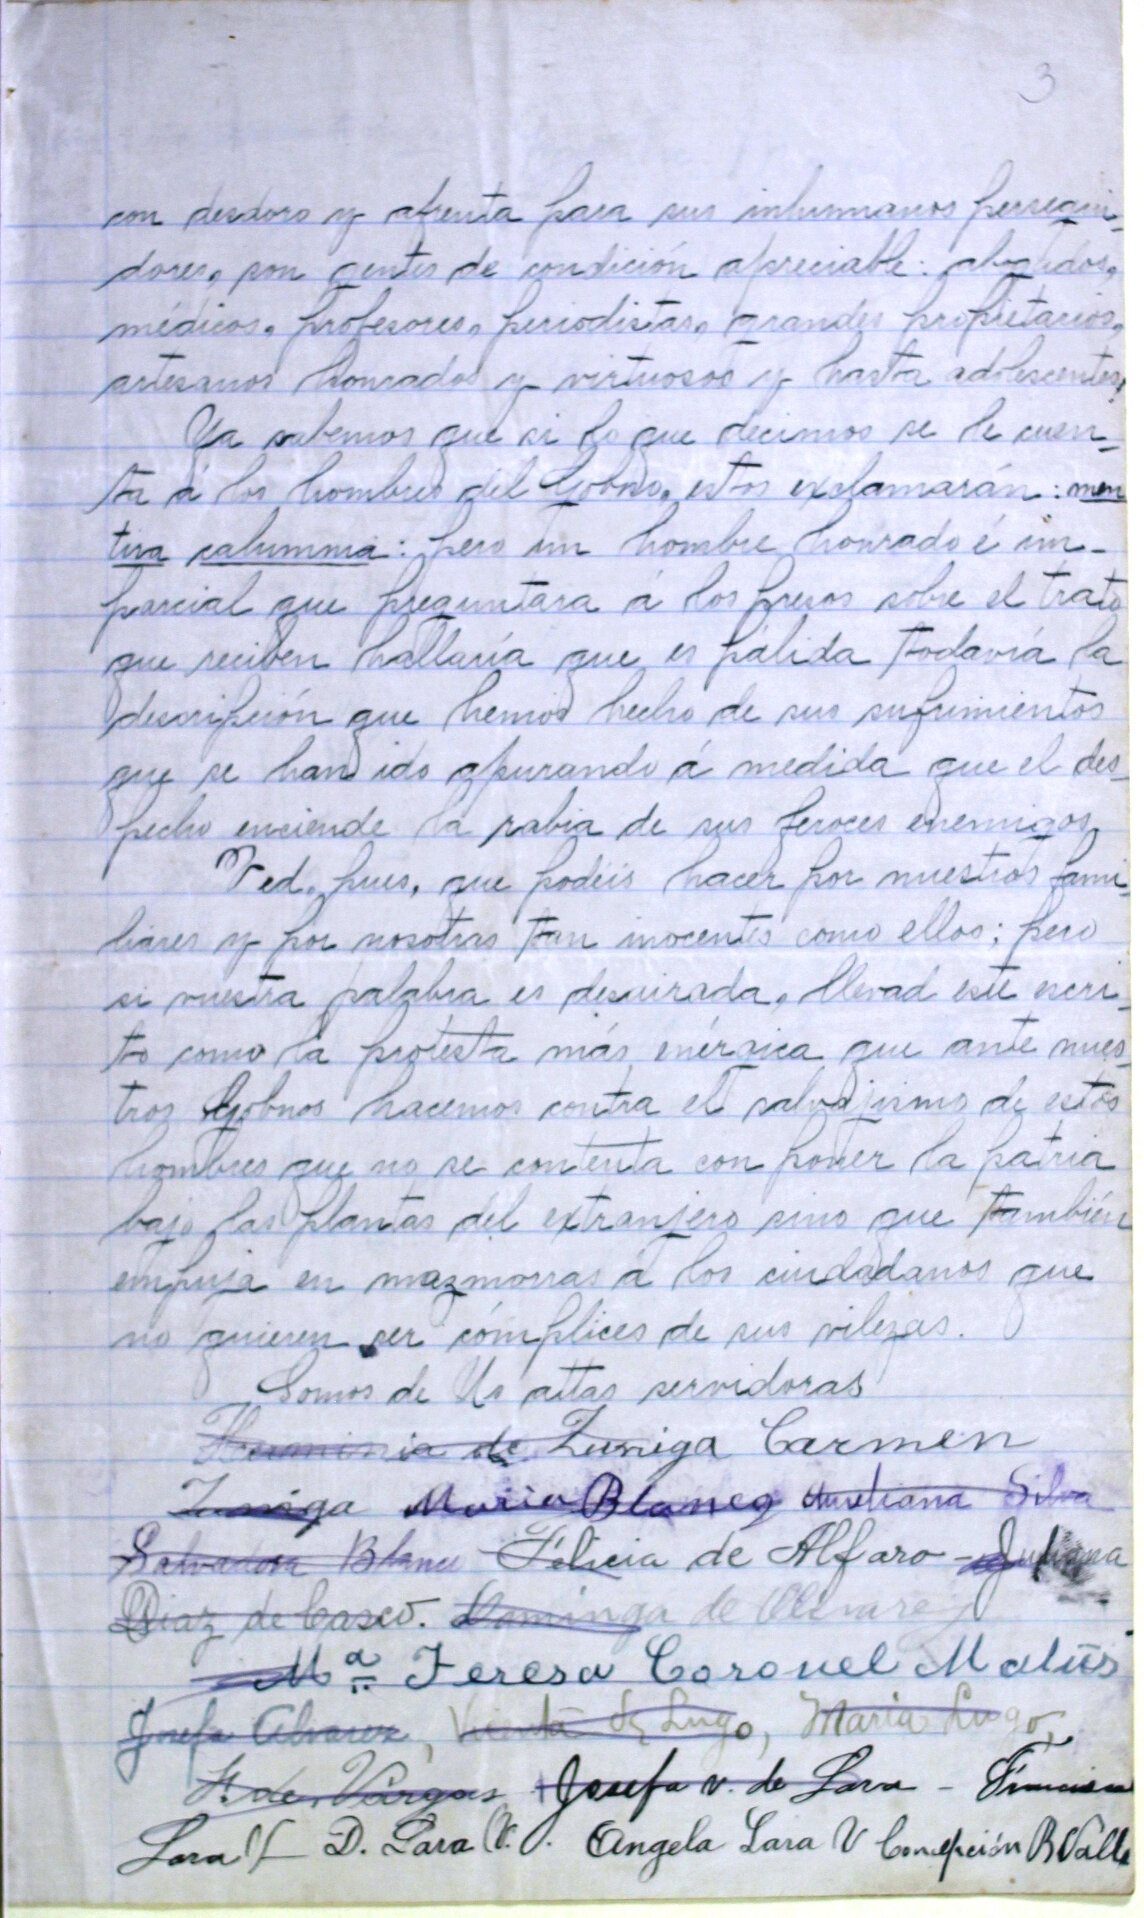 3
con desdoro y afrenta para sus inhumanos persegui-
dores, son gentes de condición apreciable: abogados,
médicos, profesores, periodistas, grandes propietarios,
artesanos honrados y virtuosos y hasta adolescentes.
Ya sabemos que si lo que decimos se le cuen-
ta á los hombres del Gobno, estos exclamarán: men
tira calumnia: pero un hombre honrado é im-
parcial que preguntara á los presos sobre el trato
que reciben hallaría que es pálida todavía la
descripción que hemos hecho de sus sufrimientos
que se han ido apurando á medida que el des-
pecho enciende la rabia de sus feroces enemigos
Ved, pues, que podéis hacer por nuestros fami-
liares y por nosotras tan inocentes como ellos; pero
si vuestra palabra es desairada, llevad este escri-
to como la protesta más enérgica que ante nues-
tros Gobnos hacemos contra el salvajismo de estos
hombres que no se contenta con poner la patria
bajo las plantas del extranjero sino que también
empuja en mazmorras á los ciudadanos que
no quieren ser cómplices de sus vilezas.
Somos de Us attas servidoras
Herminia de Zuniga Carmen
Zuniga Maria Blanco Aureliana Silva
Salvadora Blanco Felicia de Alfaro - Juliana
Diaz de Casco. Dominga de Olivarez
Mª Teresa Coronel Matus
Josefa Alvarez, de Lugo, Maria Lugo,
de Vargas Josefa v. de Lara - Francisca
Lara V D. Lara V. Angela Lara V Concepción B Valle